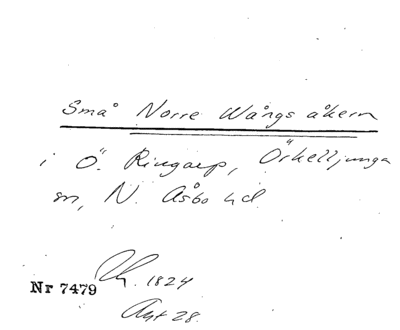 Små Norre Wångs åkern
i Ö. Ringarp, Örkelljunga
sn, N. Åsbo hd.
1824
Nr 7479
Akt 28.